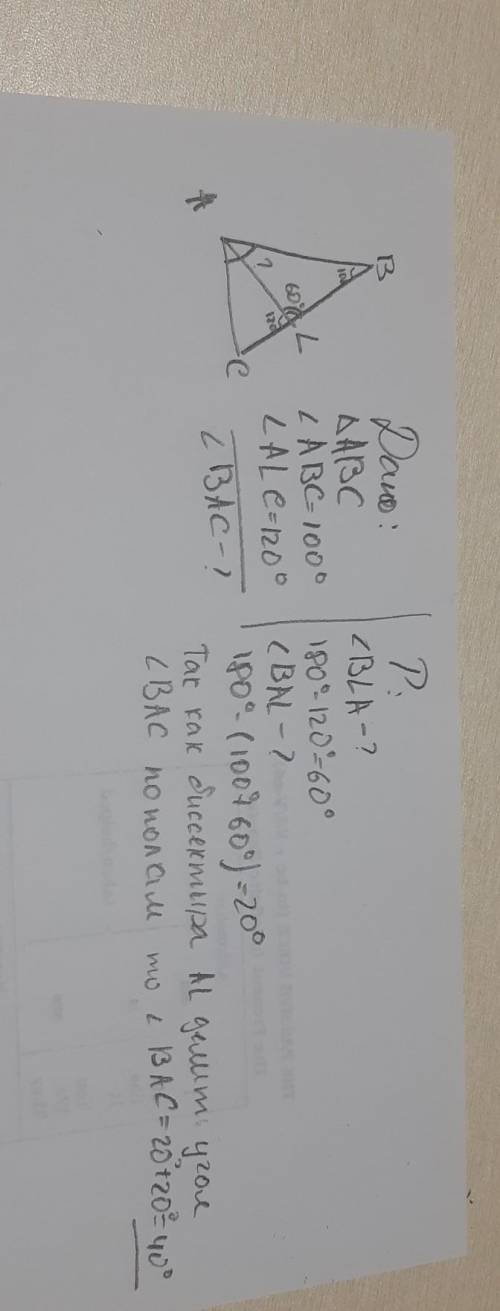 B
10
60°
L
120
?
A
C
Дано:
△ABC
∠ABC=100°
∠ALC=120°
∠BAC-?
Р:
∠BLA-?
180°-120°=60°
∠BAL-?
180°-(100°+60°)=20°
Так как биссектыра AL делит угол
∠BAC пополам то ∠BAC=20°+20°=40°